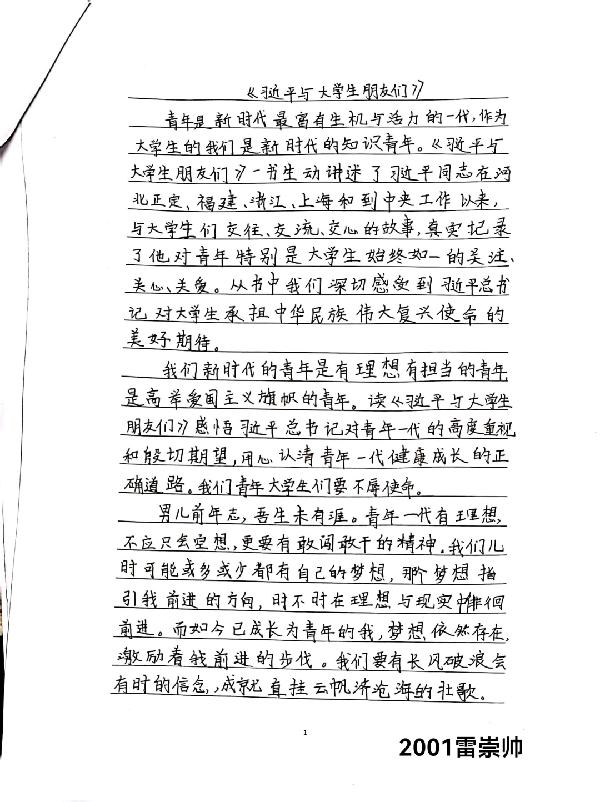 《习近平与大学生朋友们》
青年是新时代最富有生机与活力的一代,作为
大学生的我们是新时代的知识青年。《习近平与
大学生朋友们》一书生动讲述了习近平同志在河
北正定、福建、浙江、上海和到中央工作以来,
与大学生们交往、交流、交心的故事,真实记录
了他对青年特别是大学生始终如一的关注、
关心、关爱。从书中我们深切感受到习近平总书
记对大学生承担中华民族伟大复兴使命的
美好期待。
我们新时代的青年是有理想有担当的青年
是高举爱国主义旗帜的青年。读《习近平与大学生
朋友们》感悟习近平总书记对青年一代的高度重视
和殷切期望,用心认清青年一代健康成长的正
确道路。我们青年大学生们要不辱使命。
男儿前年志,吾生未有涯。青年一代有理想,
不应只会空想,更要有敢闯敢干的精神。我们儿
时可能或多或少都有自己的梦想,那个梦想指
引我前进的方向,时不时在理想与现实中徘徊
前进。而如今已成长为青年的我,梦想依然存在,
激励着我前进的步伐。我们要有长风破浪会
有时的信念,,成就直挂云帆济沧海的壮歌。
1
2001雷崇帅